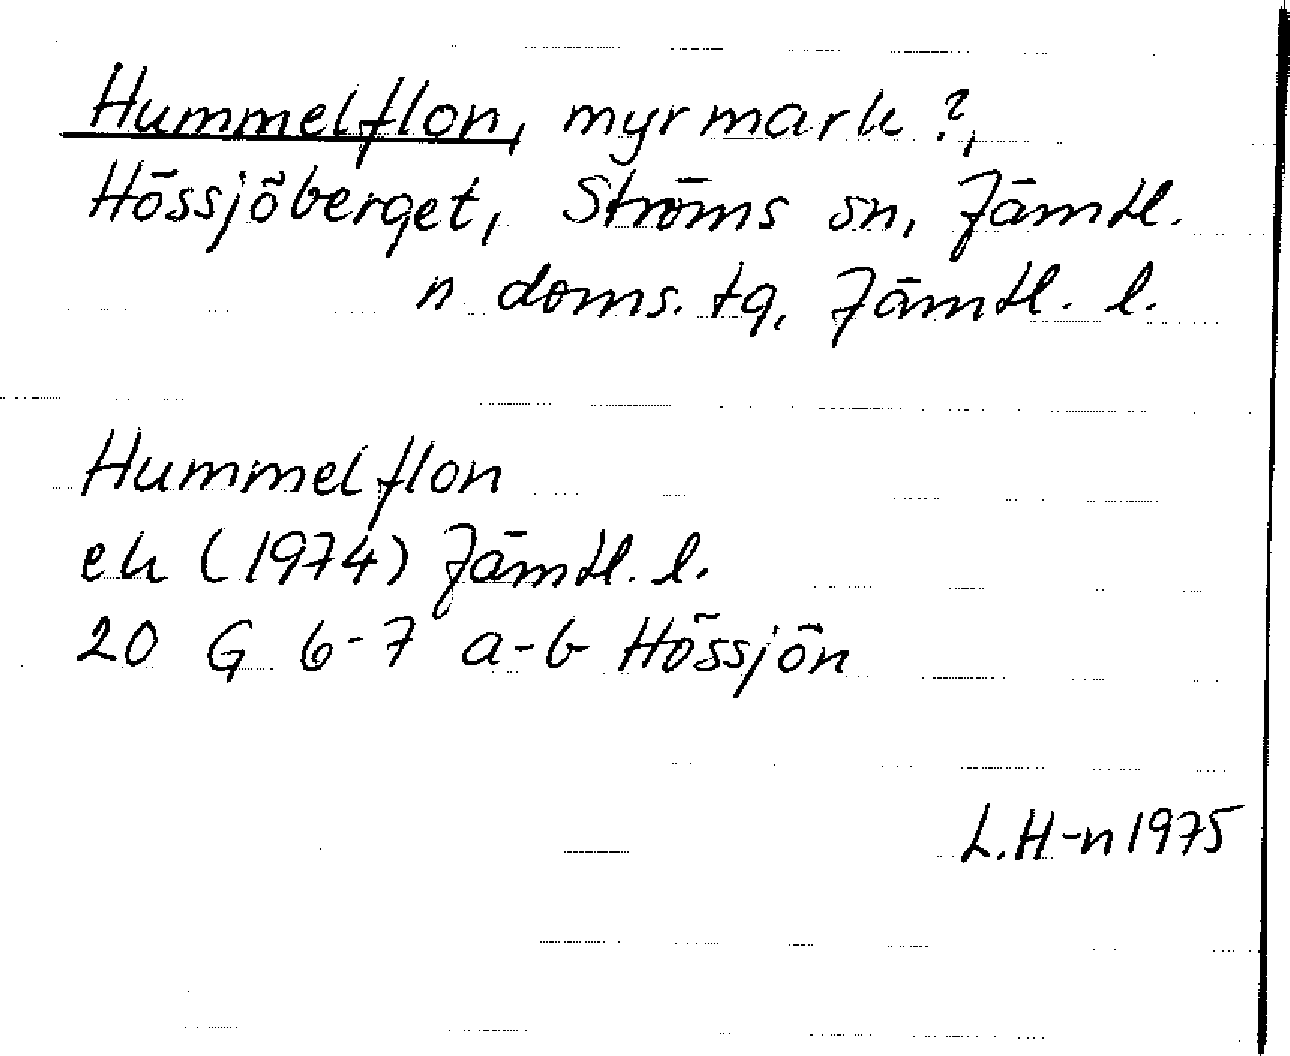 Hummelflon, myrmark?,
Hössjöberget, Ströms sn, Jämtl.
n doms. tg, Jämtl. l.
Hummelflon
ek (1974) Jämtl. l.
20 G 6-7 a-b Hössjön
L.H-n 1975